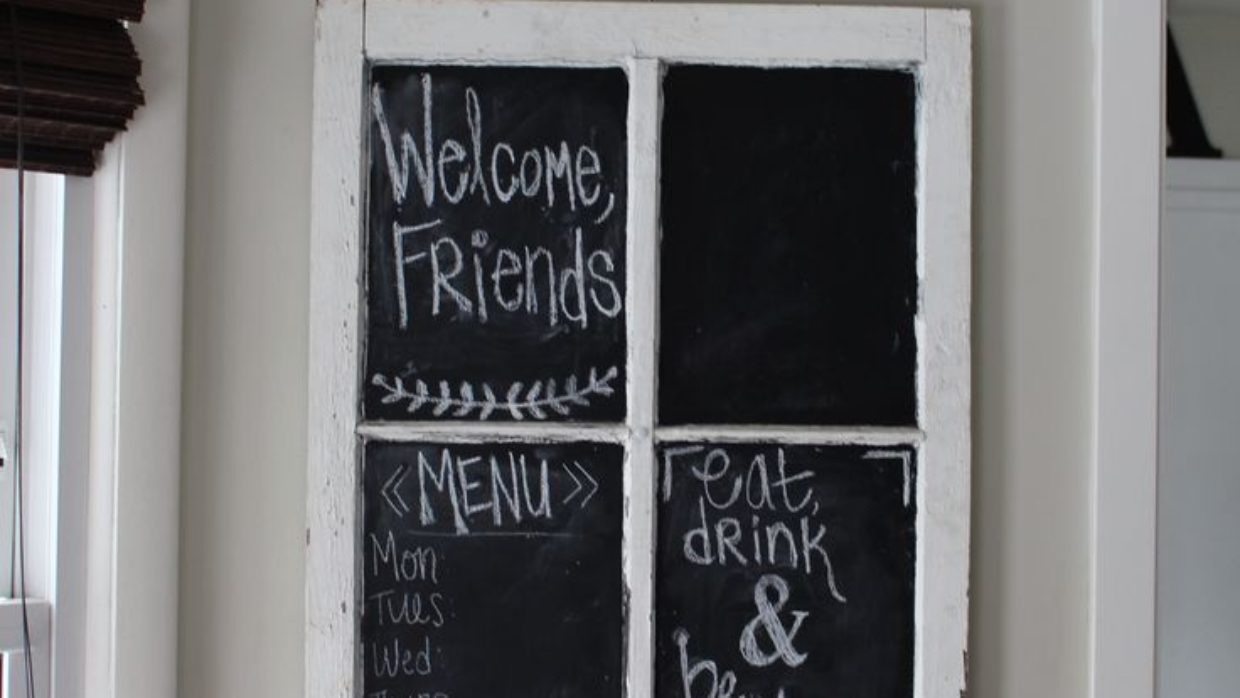 Welcome,
Friends
<< MENU >>
Mon:
Tues:
Wed:
eat,
drink
&